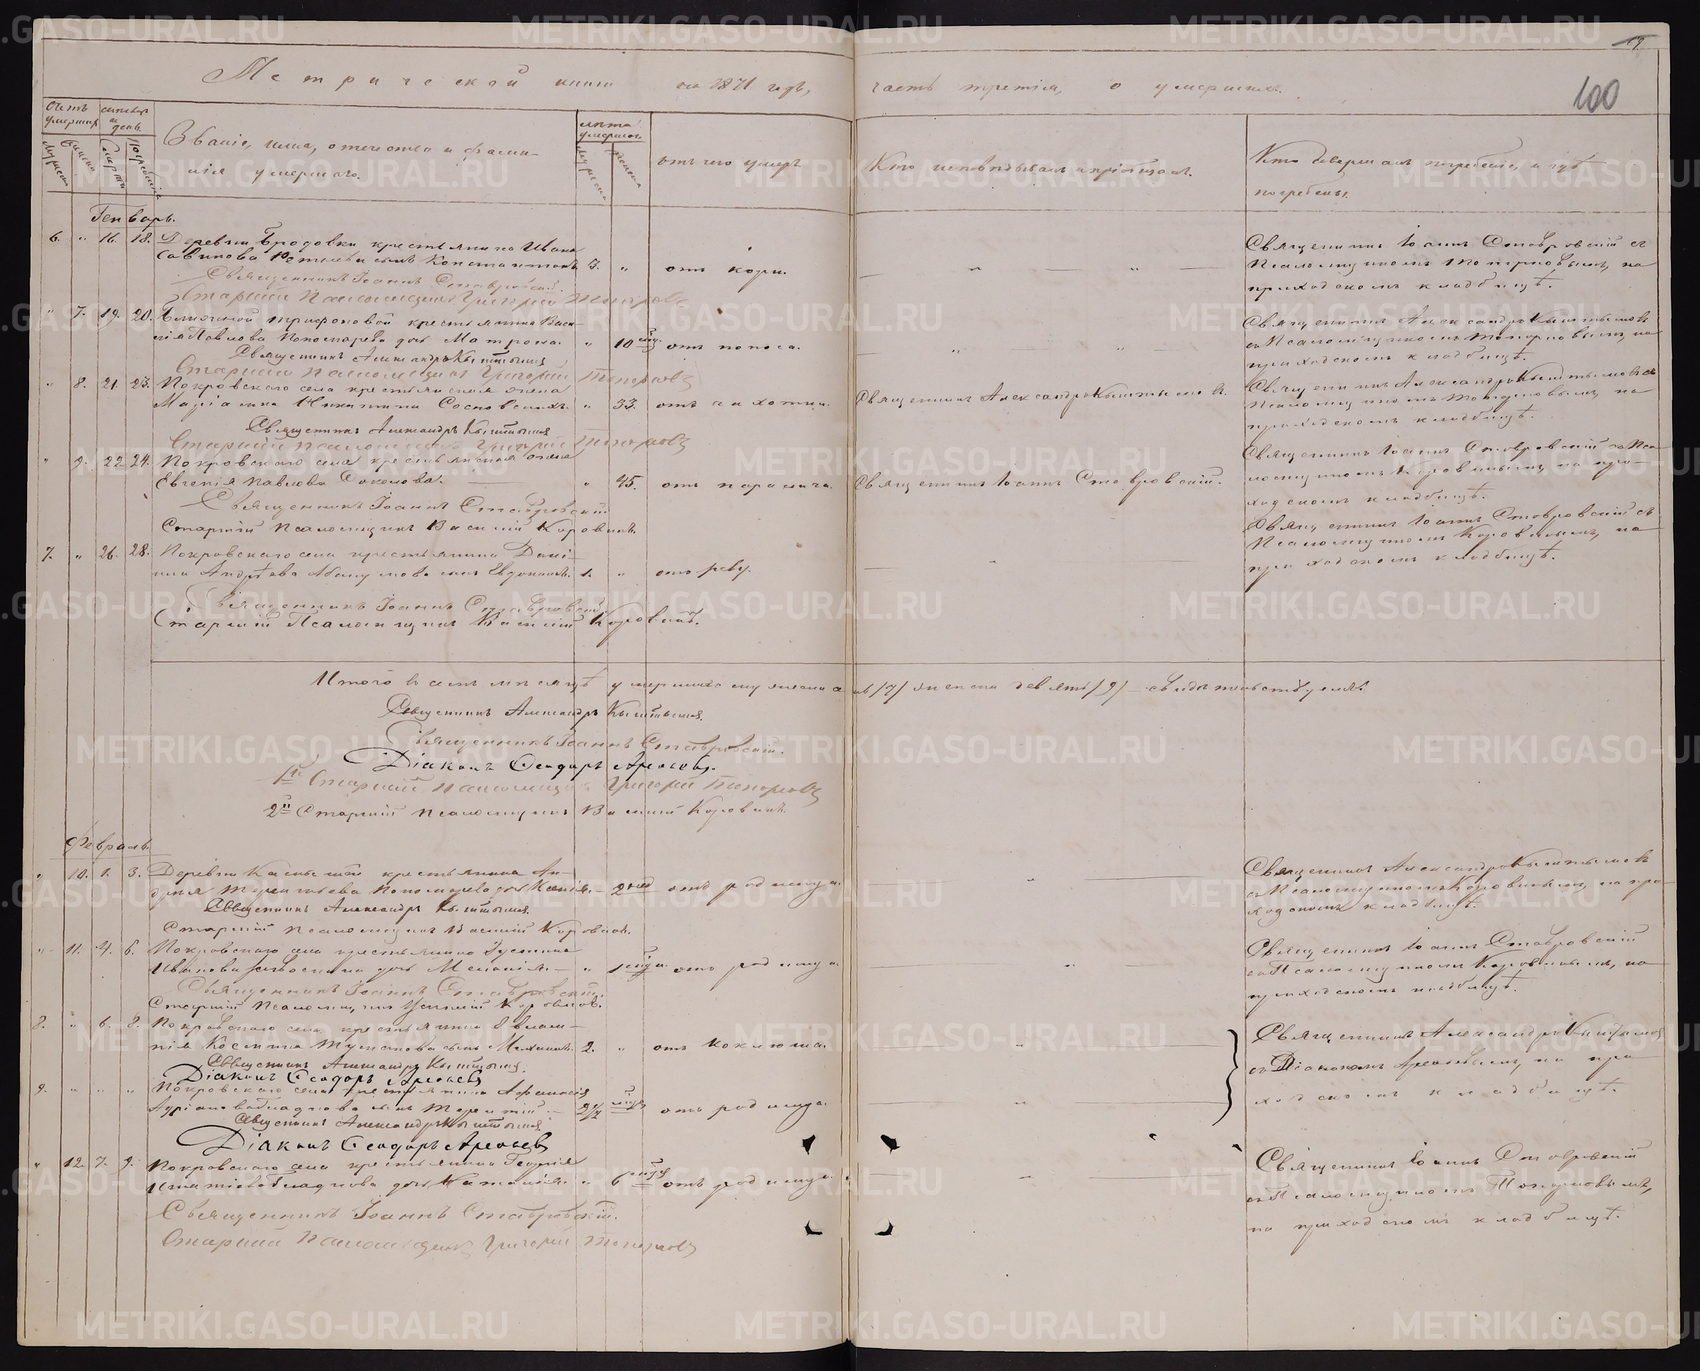 Метрической книги на 1871 годъ, часть третія, о умершихъ.
100
Счетъ умершихъ
Мѣсяцъ и день
Званіе, имя, отчество и фами-
лія умершаго.
Лѣта умершаго
отъ чего умеръ
Кто исповѣдывалъ и пріобщалъ.
Кто совершалъ погребеніе, и гдѣ
погребены.
Мужеска
Женска
Смерти
Погребенія
Мужеска
Женска
Генварь.
6. " 16. 18. Деревни Бродовки крестьянина Ивана
Савинова сынъ Константинъ 3. " отъ кори.
Священникъ Іоаннъ Ставровскій съ
Псаломщикомъ Топорковымъ, на
приходскомъ кладбищѣ.
Священникъ Іоаннъ Ставровскій.
Старшій Псаломщикъ Григорій Топорковъ
" 7. 19. 20. крестьянина Васи-
лія Павлова Пономарева дочь Матрона. " 10 отъ поноса.
Священникъ Александръ Кыштымовъ
съ Псаломщикомъ Топорковымъ, на
приходскомъ кладбищѣ.
Священникъ Александръ Кыштымовъ
Старшій Псаломщикъ Григорій Топорковъ
" 8. 21. 23. Покровскаго села крестьянская жена
Маріамна Никитина Сосновскихъ. " 33. отъ чахотки. Священникъ Александръ Кыштымовъ.
Священникъ Александръ Кыштымовъ съ
Псаломщикомъ Топорковымъ, на
приходскомъ кладбищѣ.
Священникъ Александръ Кыштымовъ
Старшій Псаломщикъ Григорій Топорковъ
" 9. 22. 24. Покровскаго села крестьянская жена
Евгенія Павлова Соколова. " 45. отъ паралича. Священникъ Іоаннъ Ставровскій.
Священникъ Іоаннъ Ставровскій съ Пса-
ломщикомъ Коровинымъ, на при-
ходскомъ кладбищѣ.
Священникъ Іоаннъ Ставровскій
Старшій Псаломщикъ Василій Коровинъ.
7. " 26. 28. Покровскаго села крестьянина Дани-
ила Андрѣева сынъ Евдокимъ. 1. " отъ реву.
Священникъ Іоаннъ Ставровскій съ
Псаломщикомъ Коровинымъ, на
приходскомъ кладбищѣ.
Священникъ Іоаннъ Ставровскій
Старшій Псаломщикъ Василій Коровинъ.
Итого въ семъ мѣсяцѣ умершихъ мужеска /7/ женска девять /9/ свидѣтельствуемъ.
Священникъ Александръ Кыштымовъ.
Священникъ Іоаннъ Ставровскій.
Діаконъ Ѳеодоръ Арефьевъ.
1й Старшій Псаломщикъ Григорій Топорковъ
2й Старшій Псаломщикъ Василій Коровинъ.
Февраль.
" 10. 1. 3. Деревни крестьянина Ан-
дрея Терентьева Пономарева дочь 2 нед. отъ родимца.
Священникъ Александръ Кыштымовъ
съ Псаломщикомъ Коровинымъ, на при-
ходскомъ кладбищѣ.
Священникъ Александръ Кыштымовъ.
Старшій Псаломщикъ Василій Коровинъ.
" 11. 4. 6. Покровскаго села крестьянина Іустина
Иванова дочь Меланія. " отъ родимца.
Священникъ Іоаннъ Ставровскій
съ Псаломщикомъ Коровинымъ, на
приходскомъ кладбищѣ.
Священникъ Іоаннъ Ставровскій.
Старшій Псаломщикъ Василій Коровинъ.
8. " 6. 8. Покровскаго села крестьянина Евлам-
пія Косьмина сынъ Михаилъ. 2. " отъ коклюша.
Священникъ Александръ Кыштымовъ
съ Діакономъ Арефьевымъ, на при-
ходскомъ кладбищѣ.
Священникъ Александръ Кыштымовъ.
Діаконъ Ѳеодоръ Арефьевъ
9. " " " Покровскаго села крестьянина Аѳанасія
сынъ Терентій отъ родимца.
Священникъ Александръ Кыштымовъ
Діаконъ Ѳеодоръ Арефьевъ
" 12. 7. 9. Покровскаго села крестьянина Георгія
дочь Наталія. " 6 отъ родимца.
Священникъ Іоаннъ Ставровскій
съ Псаломщикомъ Топорковымъ,
на приходскомъ кладбищѣ.
Священникъ Іоаннъ Ставровскій.
Старшій Псаломщикъ Григорій Топорковъ
METRIKI.GASO-URAL.RU